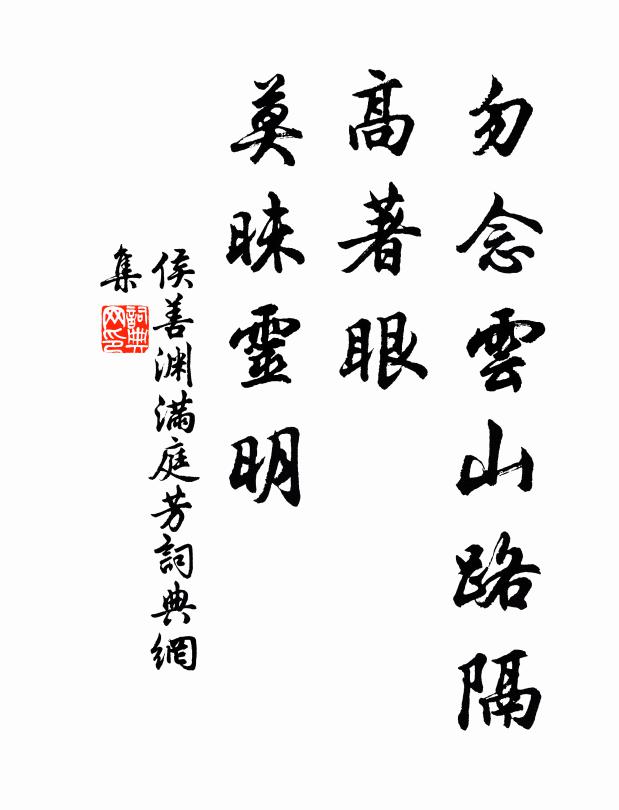 勿念雲山路隔
高著眼
莫昧靈明
侯善渊满庭芳詞典網
集
詞典
网印